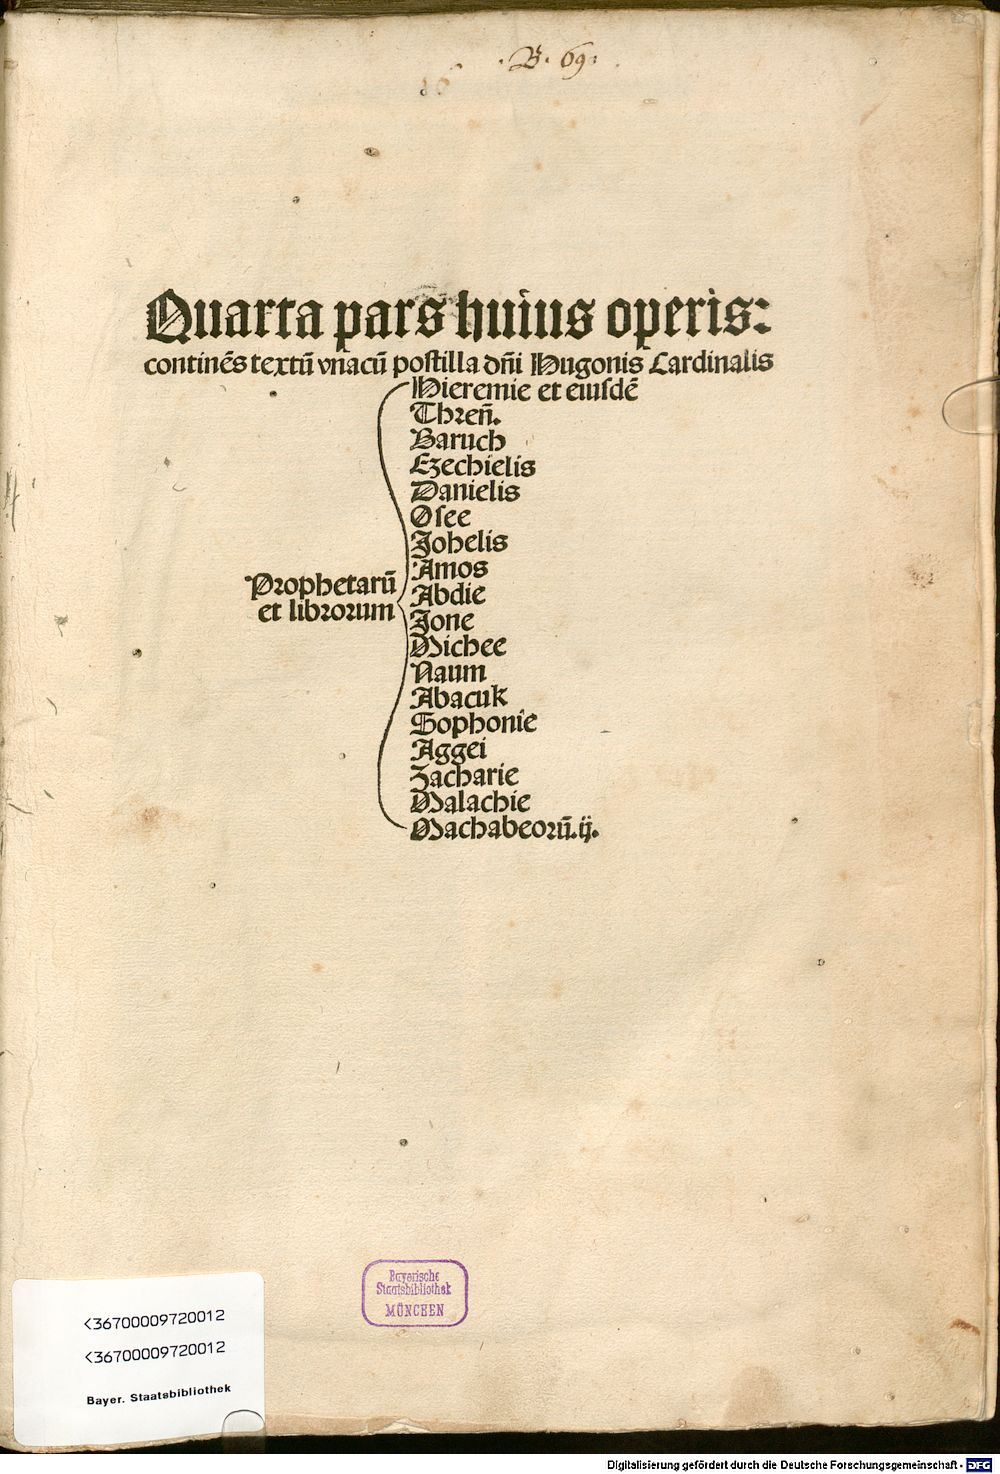 ·B· 69·
Quarta pars huius operis:
continẽs textũ vnacũ postilla dñi Hugonis Cardinalis
Hieremie et eiusdẽ
Threñ.
Baruch
Ezechielis
Danielis
Osee
Johelis
Amos
Prophetarũ
et librorum
Abdie
Jone
Michee
Naum
Abacuk
Sophonie
Aggei
Zacharie
Malachie
Machabeorũ.ij.
Bayerische
Staatsbibliothek
MÜNCHEN
<36700009720012
<36700009720012
Bayer. Staatsbibliothek
Digitalisierung gefördert durch die Deutsche Forschungsgemeinschaft - DFG